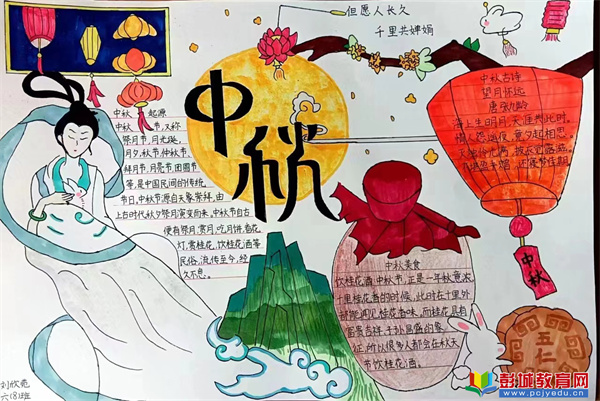 但愿人长久
千里共婵娟
中秋
中秋 起源
中秋 节，又称
祭月节、月光诞、
月夕、秋节、仲秋节、
拜月节、月亮节、团圆节
等，是中国民间的传统
节日。中秋节源自天象崇拜，由
上古时代秋夕祭月演变而来。中秋节自古
便有祭月、赏月、吃月饼、看花
灯、赏桂花、饮桂花酒等
民俗，流传至今，经
久不息。
中秋古诗
望月怀远
唐 张九龄
海上生明月，天涯共此时。
情人怨遥夜，竟夕起相思。
灭烛怜光满，披衣觉露滋。
不堪盈手赠，还寝梦佳期
中秋
中秋美食
饮桂花酒：中秋节，正是一年秋意浓
十里桂花香的时候，此时在十里外
都能闻见桂花香味，而桂花具有
富贵吉祥、子孙昌盛的象
征，所以很多人都会在秋天
节饮桂花酒。
五仁
刘欣苑
六(8)班
彭城教育网
www.pcjyedu.cn